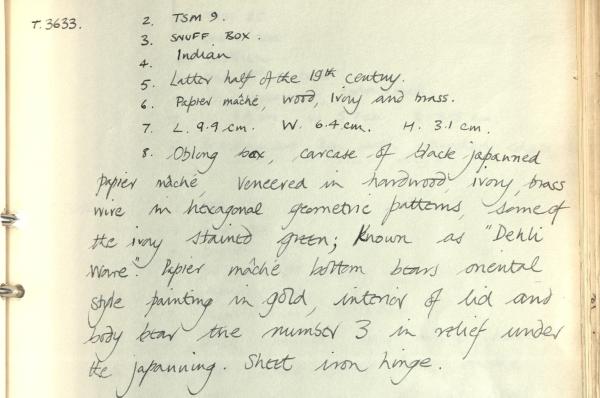 T.3633. 2. TSM 9.
3. SNUFF BOX.
4. Indian
5. Latter half of the 19th century.
6. Papier mâché, wood, ivory and brass.
7. L. 9.9 cm. W. 6.4 cm. H. 3.1 cm.
8. Oblong box, carcase of black japanned
papier mâché, veneered in hardwood, ivory, brass
wire in hexagonal geometric patterns, some of
the ivory stained green; Known as "Dehli
Ware". Papier mâché bottom bears oriental
style painting in gold, interior of lid and
body bear the number 3 in relief under
the japanning. Sheet iron hinge.